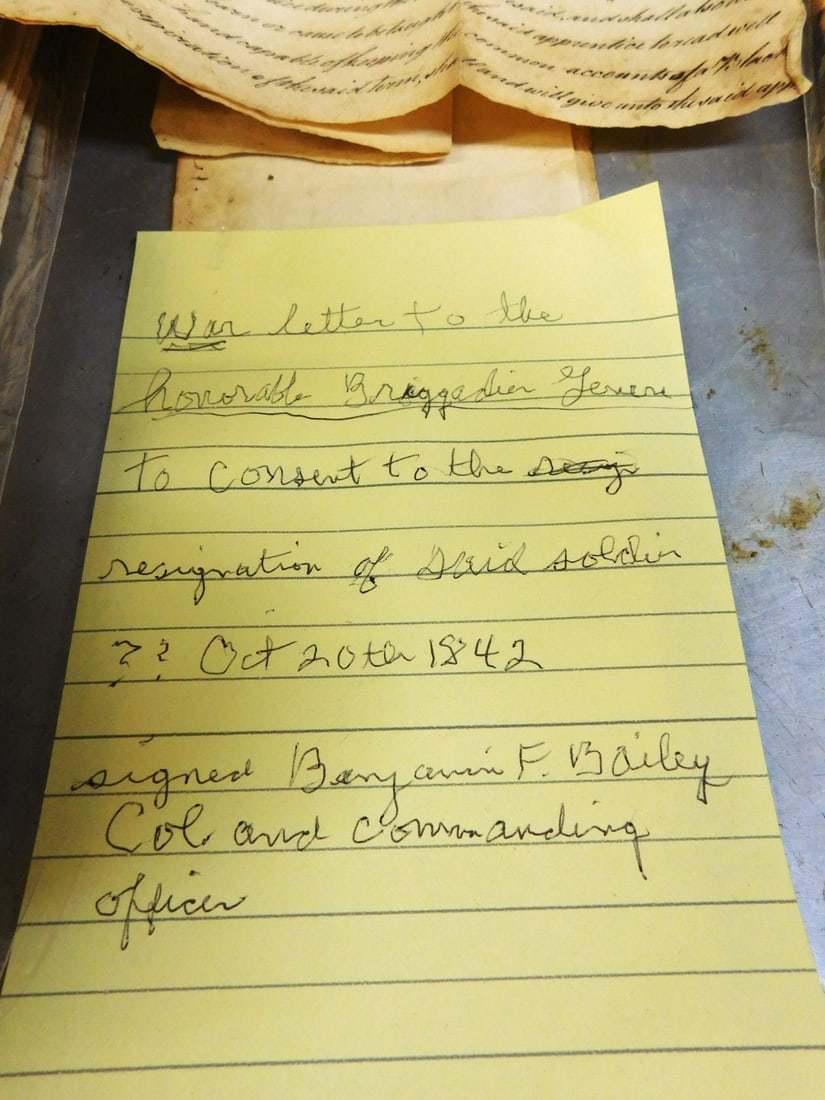 during the said, and shall also
or cause to be taught the said apprentice to read well
and capable of keeping the common accounts of a Black
expiration of the said term, shall and will give unto the said app
War letter to the
honorable Briggadier Genere
to consent to the resig
resignation of said soldier
?? Oct 20th 1842
signed Benjamin F. Bailey
Col. and commanding
officer